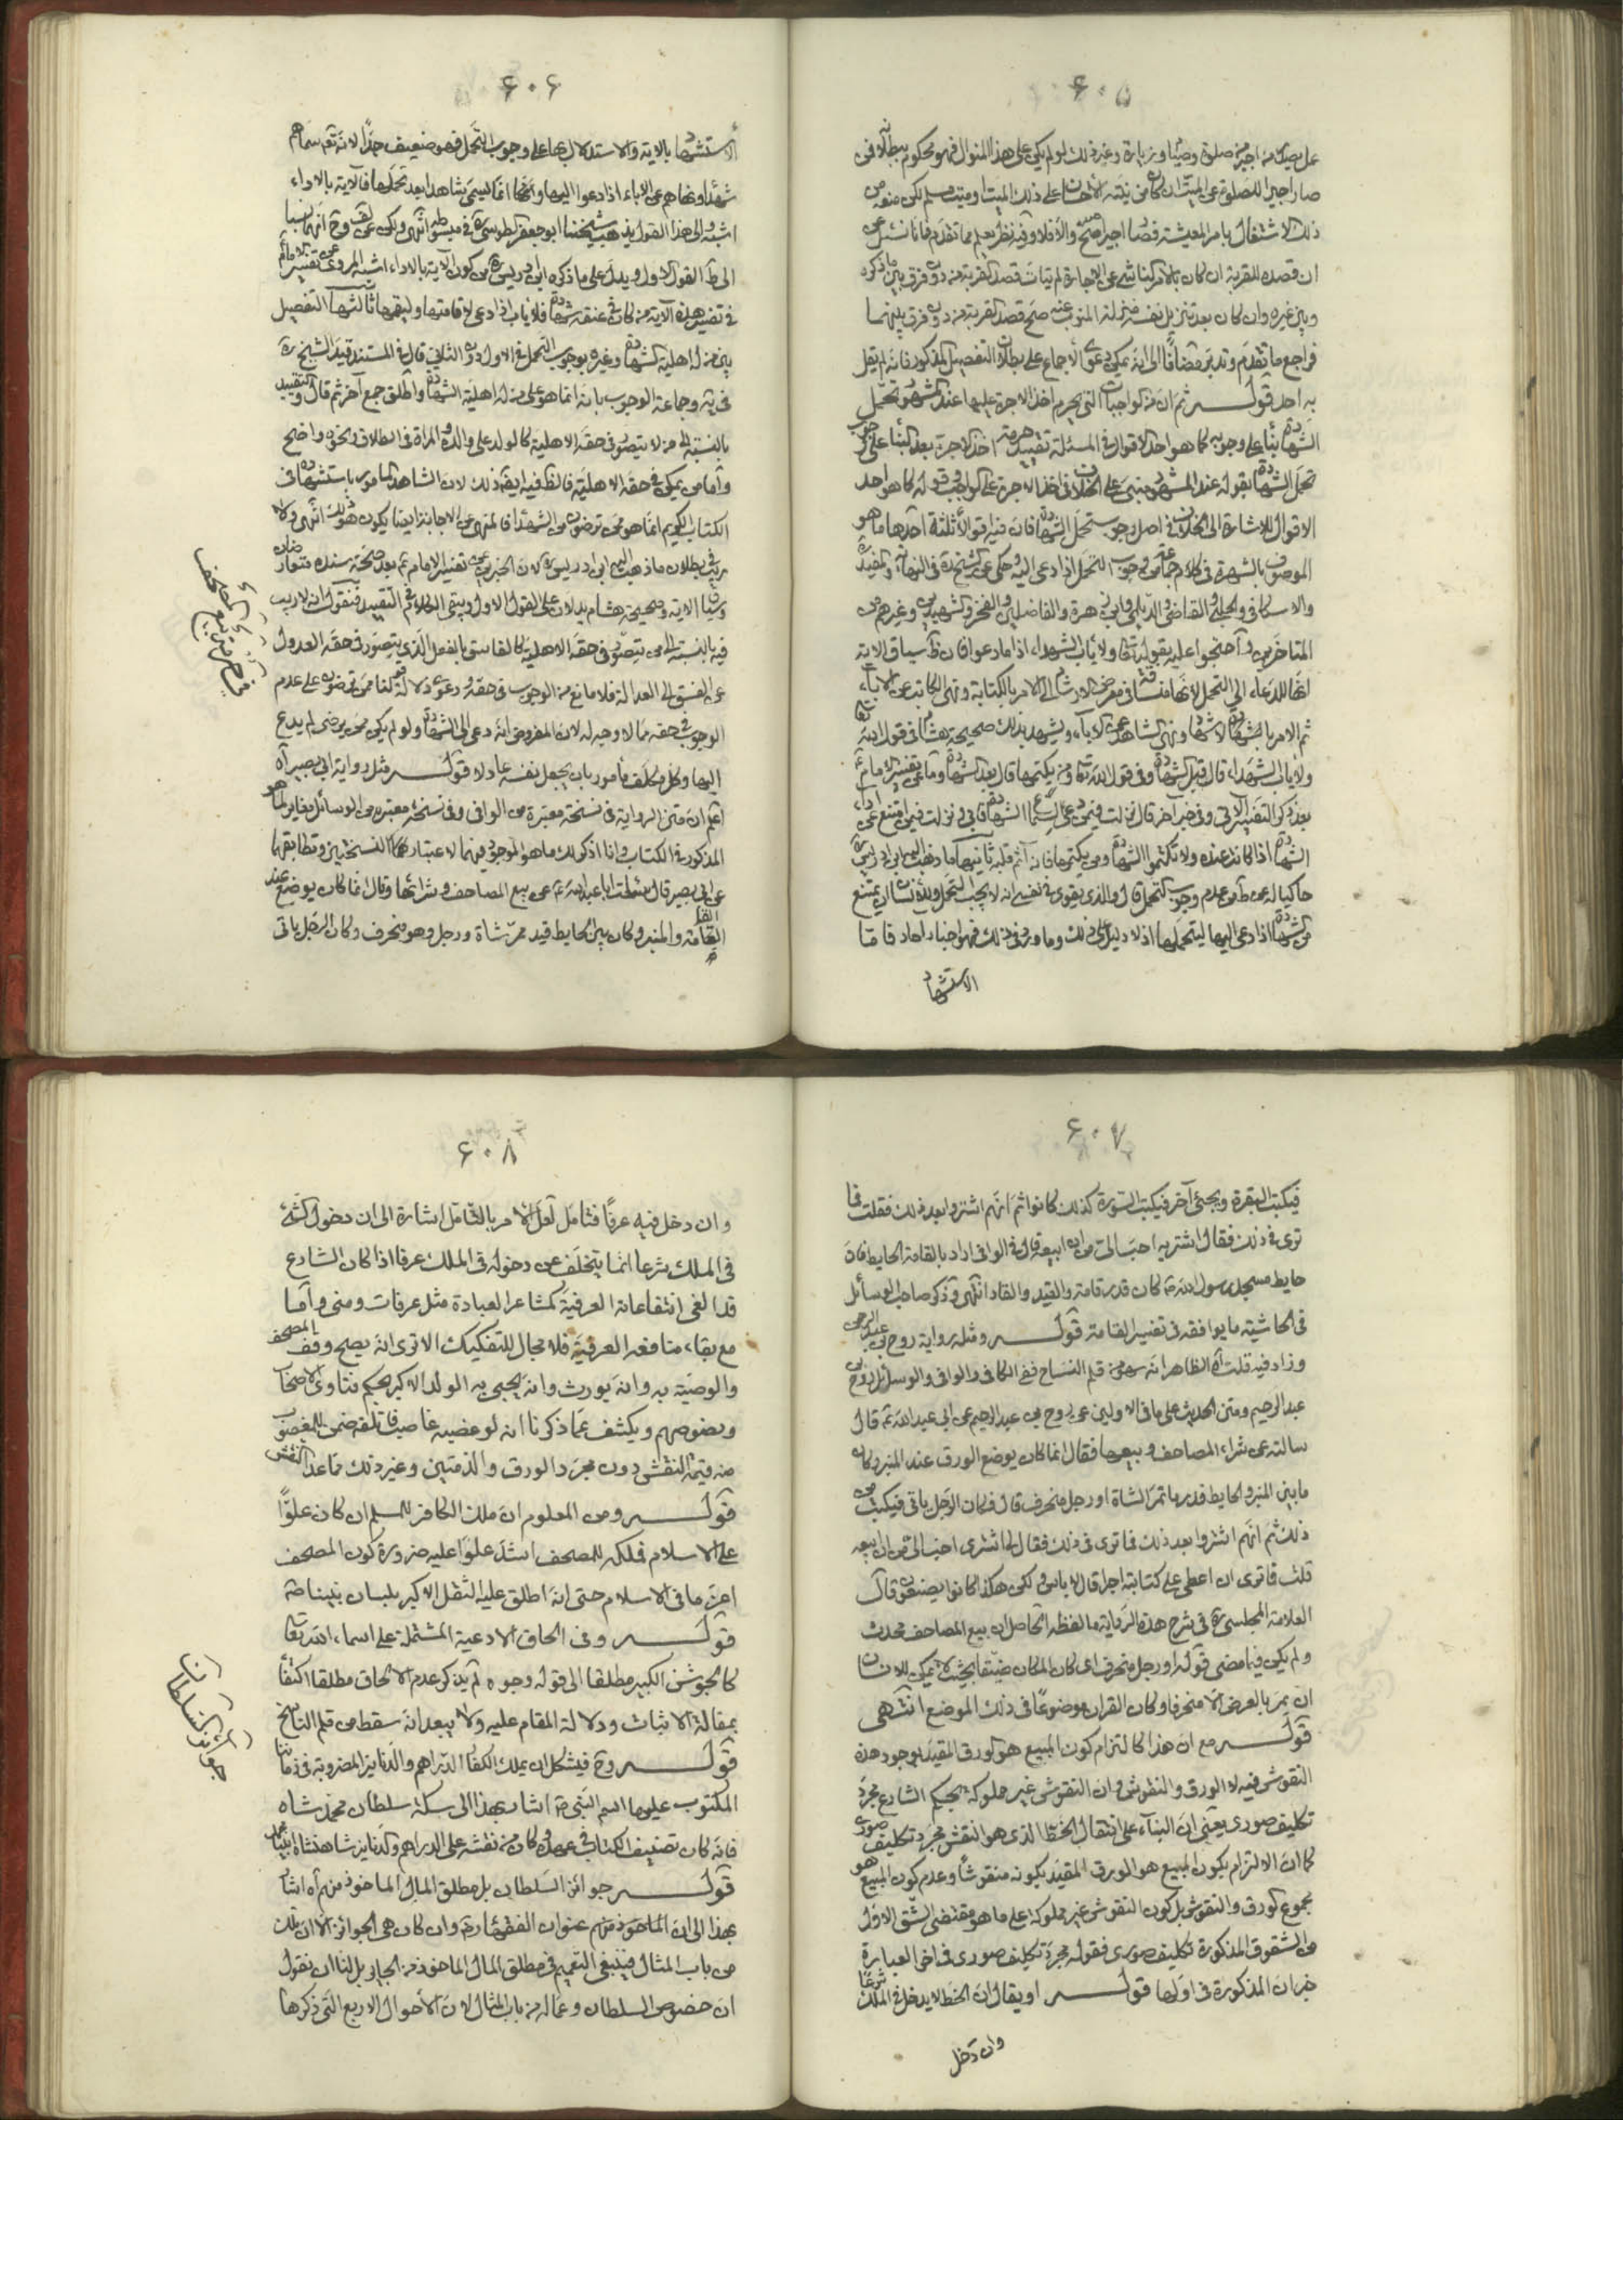 ۶۰۵
صار اجيرا للصلوة عن الميت
ذلك الاشتغال بامر المعيشة فصار اجيرا صح والا فلا وفيه نظر يعلم مما تقدم فانا نسئل عن
ان قصده للقربة ان كان
وبين غيره وان كان بعد تنزيل نفسه منزلة المنوب عنه صح قصد القربة منه دون فرق بينهما
فراجع ما تقدم وتدبر مضافا الى انه يمكن دعوى الاجماع على بطلان التفصيل المذكور فانه لم يقل
به احد قوله ثم ان من الواجبات التي يحرم اخذ الاجرة عليها عند المشهور تحمل
الشهادة بناء على وجوبه كما هو احد الاقوال في المسئلة تقييد حرمة اخذ الاجرة بعد البناء على وجوب
تحمل الشهادة بقوله عند المشهور مبني على الخلاف في اخذ الاجرة على الواجب وقوله كما هو احد
الاقوال للاشارة الى الخلاف في اصل وجوب تحمل الشهادة فان فيه اقوالا ثلثة احدها ما هو
الموصوف بالشهرة في كلام جماعة من وجوب التحمل اذا دعى اليه وحكى عن الشيخ ره في النهاية والمفيد
والاسكافي والحلبي والقاضي والديلمي وابن زهرة والفاضلين والفخر والشهيدين وغيرهم من
المتاخرين واحتجوا عليه بقوله تعالى ولا ياب الشهداء اذا ما دعوا فان ظ سياق الاية
ثم الامر بالشهادة ونهي الشاهد عن الاباء ويشهد بذلك صحيحة هشام في قول الله
ولا ياب الشهداء قال قبل الشهادة وفي قول الله تعالى ومن يكتمها قال بعد الشهادة وما عن تفسير الامام ع
الشهادة اذا كانت عنده ولا تكتموا الشهادة ومن يكتمها فانه آثم قلبه ثانيها ما ذهب اليه ابن ادريس
حاكيا له عن ظ من عدم وجوب التحمل قال والذي يقوى في نفسي انه لا يجب التحمل وللانسان ان يمتنع
من الشهادة اذا دعى اليها ليتحملها اذ لا دليل على ذلك وما ورد في ذلك فهو اخبار احاد فاما
الاستشهاد
۶۰۶
الاستشهاد بالاية والاستدلال بها على وجوب التحمل فهو ضعيف جدا لانه تعم سماهم
شهداء ونهاهم عن الاباء اذا دعوا اليها وانما يسمى شاهدا بعد تحملها فالاية بالاداء
اشبه والى هذا القول يذهب شيخنا ابو جعفر الطوسي ره في مبسوطه انتهى
في تفسير هذه الاية من كان في عنقه شهادة فلا ياب اذا دعى لاقامتها وليقمها ثالثها التفصيل
بين من له اهلية الشهادة وغيره بوجوب التحمل في الاول دون الثاني قال في المستند قيد الشيخ ره
في ية وجماعة الوجوب بانه انما هو على من له اهلية الشهادة واطلق جمع آخر ثم قال والتقييد
بالنسبة الى من لا يتصور في حقه الاهلية كالولد على والده والمراة في الطلاق ونحوه واضح
واما من يمكن في حقه الاهلية فالظ فيه ايضا ذلك لان الشاهد المامور باستشهاده في
الكتاب الكريم انما هو ممن ترضون من الشهداء فالمنهي عن الاجابة ايضا يكون هو ذلك انتهى ولا
وسياق الاية وصحيحة هشام يدلان على القول الاول ويبقى الكلام في التقييد فنقول انه لا ريب
فيه بالنسبة الى من يتصور في حقه الاهلية كالفاسق بالفعل الذي يتصور في حقه العدول
عن الفسق الى العدالة فلا مانع من الوجوب في حقه ودعوى دلالة قوله تعالى ممن ترضون على عدم
الوجوب في حقه مما لا وجه له لان المفروض انه دعى الى الشهادة ولو لم يكن ممن يرضى لم يدع
اليها وكل مكلف مامور بان يجعل نفسه عادلا قوله مثل رواية ابي بصير آه
اعلم ان متن الرواية في نسخة معتبرة من الوافي وفي نسخة معتبرة من الوسائل يغاير لما هو
المذكور في الكتاب وانا اذكر لك ما هو الموجود فيهما لاعتبار كلتا النسختين وتطابقهما
عن ابي بصير قال سئلت ابا عبد الله ع عن بيع المصاحف وشرائها وقال انما كان يوضع عند
القامة والمنبر وكان بين الحايط قيد ممر شاة ورجل وهو منحرف وكان الرجل ياتي
۶۰۷
فيكتب البقرة ويجئ آخر فيكتب السورة كذلك كانوا ثم انهم اشتروا بعد ذلك فقلت فما
ترى في ذلك فقال اشتريه احب الي من ان ابيعه قال في الوافي اراد بالقامة الحايط فان
حايط مسجد رسول الله ص كان قدر قامة والقيد والقاد انتهى وذكر صاحب الوسائل
في الحاشية ما يوافقه في تفسير القامة قوله ومثله رواية روح بن عبد الرحمن
وزاد فيه قلت آه الظاهر انه سهو من قلم النساخ ففي الكافي والوافي والوسائل روح بن
عبد الرحيم ومتن الحديث على ما في الاولين عن روح بن عبد الرحيم عن ابي عبد الله ع قال
سالته عن شراء المصاحف وبيعها فقال انما كان يوضع الورق عند المنبر وكان
ما بين المنبر والحايط قدر ما تمر الشاة او رجل منحرف قال فكان الرجل ياتي فيكتب من
ذلك ثم انهم اشتروا بعد ذلك فما ترى في ذلك فقال لي اشترى احب الي من ان ابيعه
قلت فما ترى ان اعطى على كتابته اجرا قال لا باس ولكن هكذا كانوا يصنعون قال
العلامة المجلسي ره في شرح هذه الرواية ما لفظه الحاصل ان بيع المصاحف محدث
ولم يكن فيما مضى قوله او رجل منحرف اى كان المكان ضيقا بحيث لا يمكن للانسان
ان يمر بالعرض الا منحرفا وكان القران موضوعا في ذلك الموضع انتهى
قوله مع ان هذا كالتزام كون المبيع هو الورق المقيد بوجود هذه
النقوش فيه لا الورق والنقوش فان النقوش غير مملوكة بحكم الشارع مجرد
تكليف صوري يعني ان البناء على انتقال الخط الذي هو النقش مجرد تكليف صوري
كما ان الالتزام بكون المبيع هو الورق المقيد بكونه منقوشا وعدم كون المبيع هو
مجموع الورق والنقوش بل كون النقوش غير مملوكة على ما هو مقتضى الشق الاول
من الشقوق المذكورة تكليف صوري فقوله مجرد تكليف صوري في اخر العبارة
خبر ان المذكورة في اولها قوله او يقال ان الخط لا يدخل في الملك شرعا
وان دخل
۶۰۸
وان دخل فيه عرفا فتامل لعل الامر بالتامل اشارة الى ان دخول الشئ
في الملك شرعا انما يتخلف عن دخوله في الملك عرفا اذا كان الشارع
قد الغى انتفاعاته العرفية كمشاعر العبادة مثل عرفات ومنى واما
مع بقاء منافعه العرفية فلا مجال للتفكيك الا ترى انه يصح وقف المصحف
والوصية به وانه يورث وانه يحبى به الولد الاكبر بحكم فتاوى الاصحاب
ونصوصهم ويكشف عما ذكرنا انه لو غصبه غاصب فاتلفه ضمن للمغصوب
منه قيمة النقش دون مجرد الورق والدفتين وغير ذلك مما عدا النقش
قوله ومن المعلوم ان ملك الكافر للمسلم ان كان علوا
على الاسلام فملكه للمصحف اشد علوا عليه ضرورة كون المصحف
اعز ما في الاسلام حتى انه اطلق عليه الثقل الاكبر بلسان نبينا ص
قوله وفي الحاق الادعية المشتملة على اسماء الله تعالى
كالجوشن الكبير مطلقا الى قوله وجوه لم يذكر عدم الالحاق مطلقا اكتفاء
بمقالة الاثبات ودلالة المقام عليه ولا يبعد انه سقط من قلم الناسخ
قوله وح فيشكل ان يملك الكفار الدراهم والدنانير المضروبة في زماننا
المكتوب عليها اسم النبي ص اشار بهذا الى سكة سلطان محمد شاه
فانه كان تصنيف الكتاب في عهده وكان من نقشه على الدراهم والدنانير شاهنشاه انبياء محمد
قوله جوائز السلطان بل مطلق المال الماخوذ منهم آه اشار
بهذا الى ان الماخوذ منهم عنوان الفقهاء ره وان كان هي الجوائز الا ان ذلك
من باب المثال فينبغي التعميم في مطلق المال الماخوذ من الجاير بل لنا ان نقول
ان خصوص السلطان وعماله من باب المثال لان الاحوال الاربع التي ذكرها
جوائز السلطان